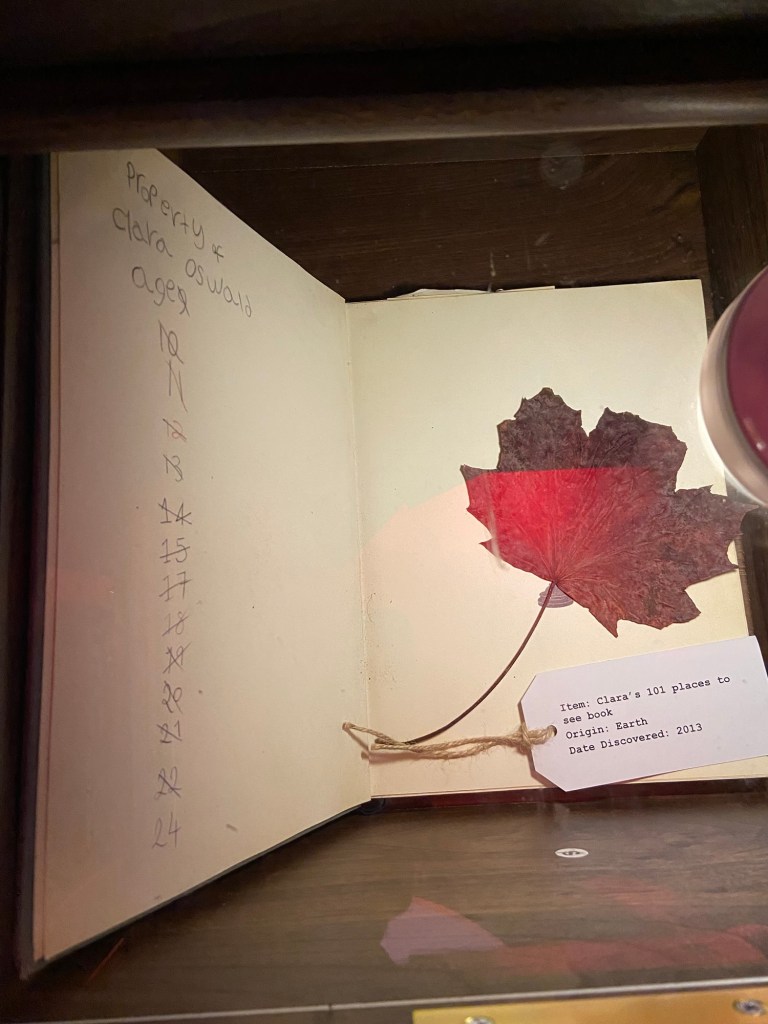 Property of
Clara Oswald
age 9
10
11
12
13
14
15
17
18
19
20
21
24
Item: Clara's 101 places to
see book
Origin: Earth
Date Discovered: 2013